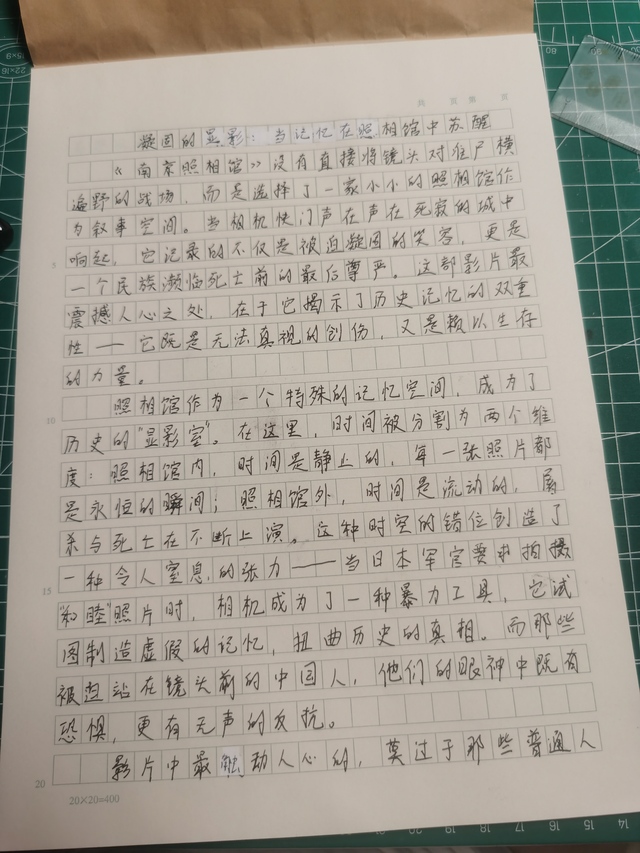 共 页 第 页
凝固的显影：当记忆在照相馆中苏醒
《南京照相馆》没有直接将镜头对住尸横
遍野的战场，而是选择了一家小小的照相馆作
为叙事空间。当相机快门声在声在死寂的城中
响起，它记录的不仅是被迫凝固的笑容，更是
5
一个民族濒临死亡前的最后尊严。这部影片最
震撼人心之处，在于它揭示了历史记忆的双重
性——它既是无法直视的创伤，又是赖以生存
的力量。
照相馆作为一个特殊的记忆空间，成为了
10
历史的"显影室"。在这里，时间被分割为两个维
度：照相馆内，时间是静止的，每一张照片都
是永恒的瞬间；照相馆外，时间是流动的，屠
杀与死亡在不断上演。这种时空的错位创造了
一种令人窒息的张力——当日本军官要求拍摄
15
"和睦"照片时，相机成为了一种暴力工具，它试
图制造虚假的记忆，扭曲历史的真相。而那些
被迫站在镜头前的中国人，他们的眼神中既有
恐惧，更有无声的反抗。
影片中最触动人心的，莫过于那些普通人
20
20×20=400